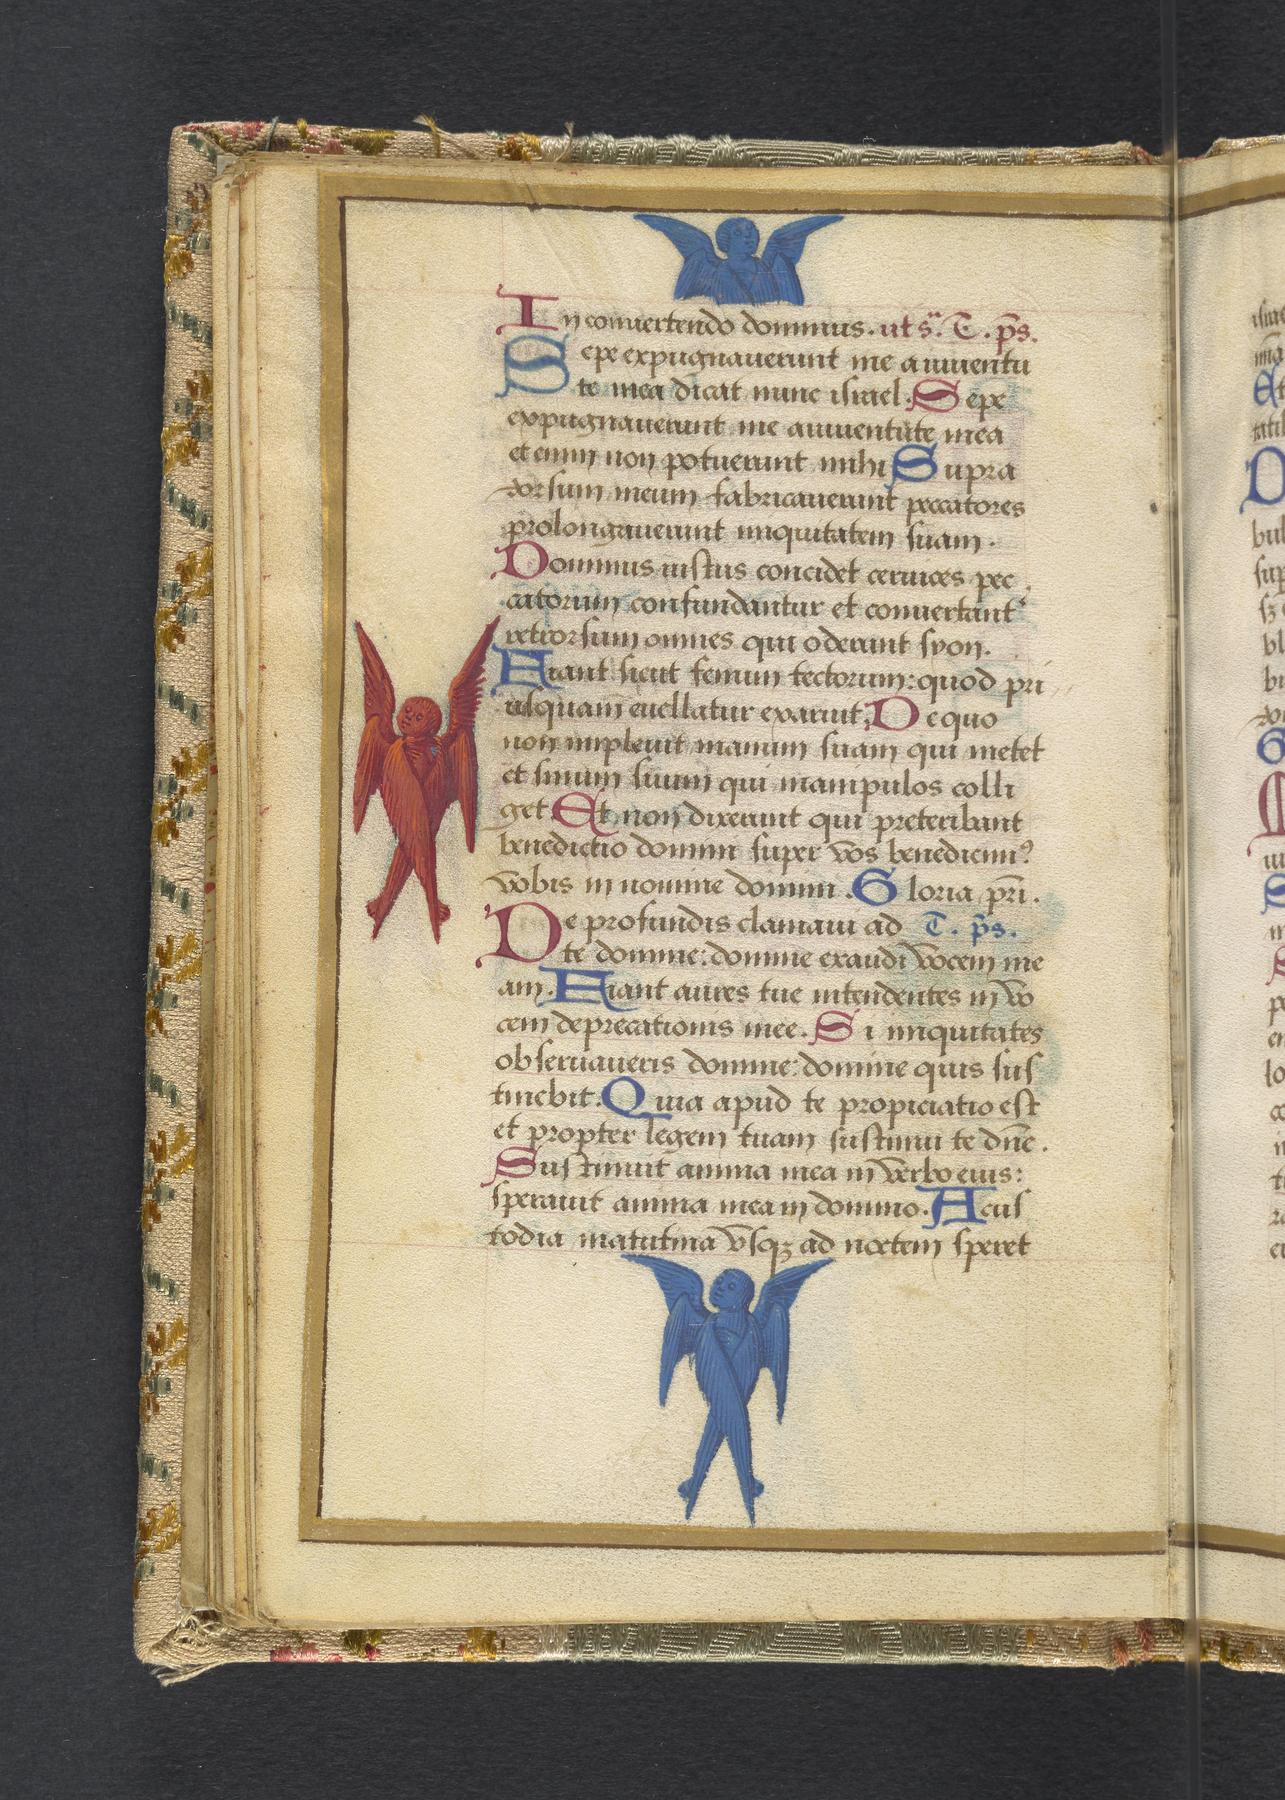 In conuertendo dominus. ut sᵃ. T. ps.
Sepe expugnauerunt me a iuuentu
te mea dicat nunc israel. Sepe
expugnauerunt me a iuuentute mea
et enim non potuerunt mihi Supra
dorsum meum fabricauerunt peccatores
prolongauerunt iniquitatem suam.
Dominus iustus concidet ceruices pec
catorum confundantur et conuertant᷒
retrorsum omnes qui oderunt syon.
Fiant sicut fenum tectorum: quod pri
usquam euellatur exaruit. De quo
non impleuit manum suam qui metet
et sinum suum qui manipulos colli
get. Et non dixerunt qui preteribant
benedictio domini super vos benediximꝰ
vobis in nomine domini. Gloria pri̅.
De profundis clamaui ad T. ps.
te domine: domine exaudi vocem me
am. Fiant aures tue intendentes in vo
cem deprecationis mee. Si iniquitates
obseruaueris domine: domine quis sus
tinebit. Quia apud te propiciatio est
et propter legem tuam sustinui te dn̅e.
Sustinuit anima mea in verbo eius:
sperauit anima mea in domino. A cus
todia matutina vsqꝫ ad noctem speret